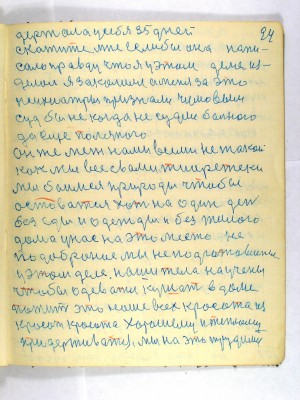 24
держала у себя 35 дней
скажите мне если бы она напи-
сало правду что я у этом деле из-
делал я законом а меня за это
психиатры признали чиловеком
суд бы не когда не судил больного
да еще полезного
он же меж нами вешч не такой
как мы все с вами теоретеки
мы боимся природы чтобы
остоватся хотя на один день
без еды и одежды и без жилого
дома у нас на это место не
подобраное мы не подготовлены
у этом деле. наши тела научены
чтобы одевати кушат в доме
жит это наше всех красота из
красот красота хорошему и теплому
придерживатся, мы на это трудимся